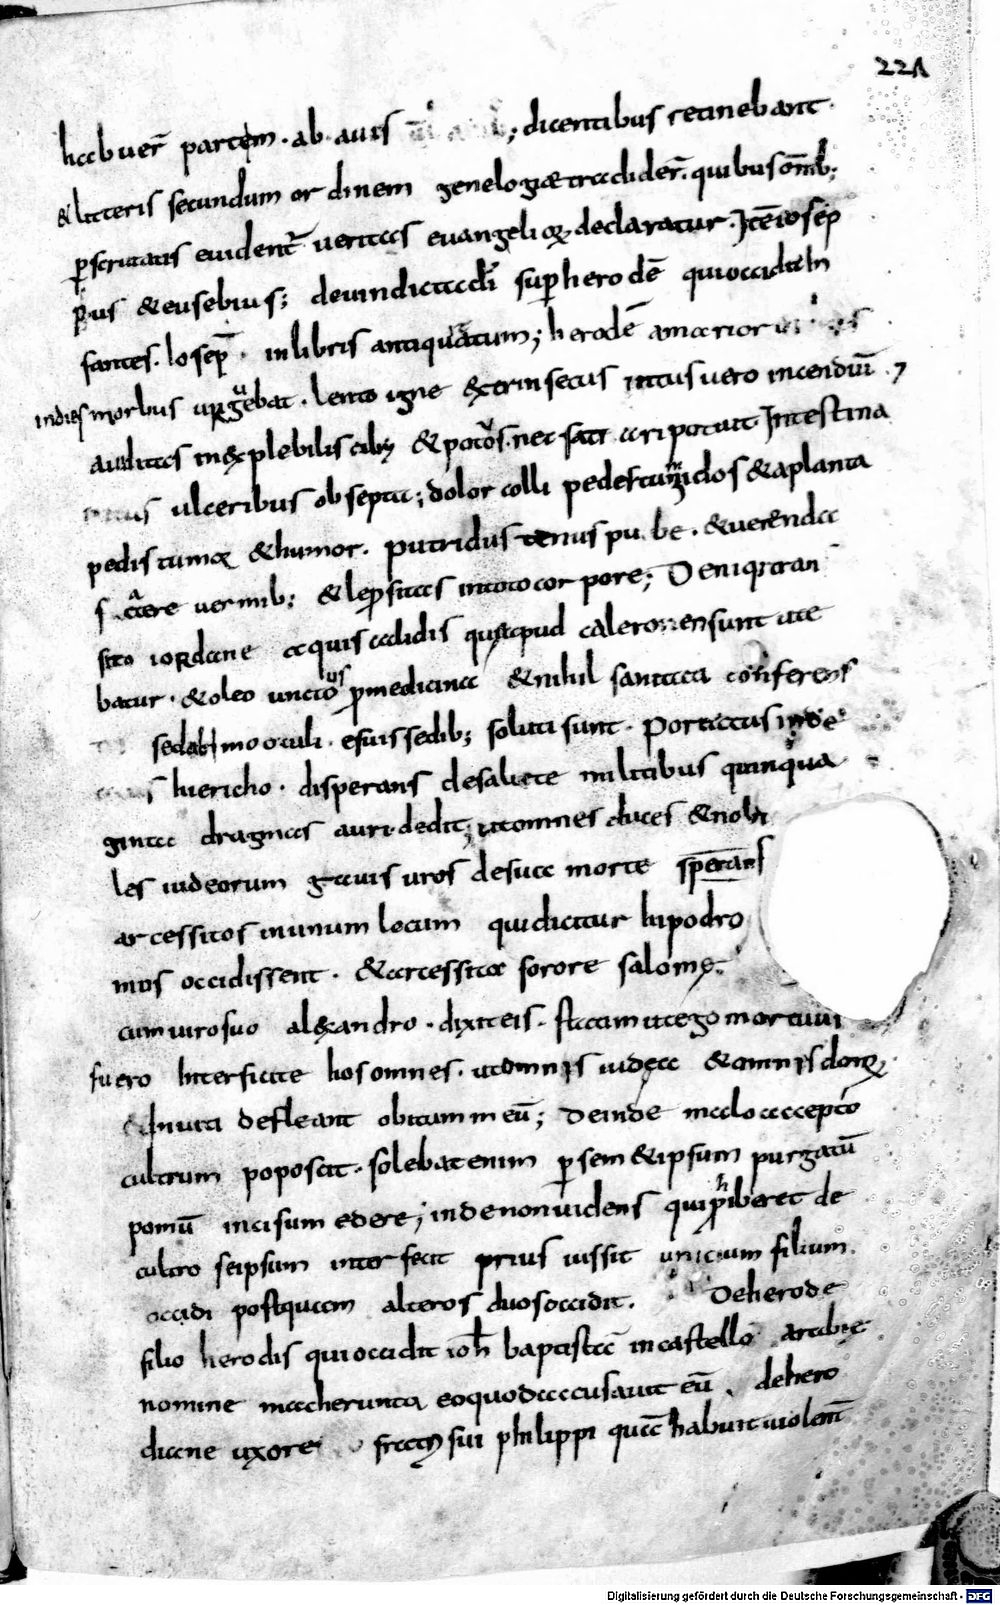 221
habuer̄ partem · ab · auis ; dicentibus retinebant ·
& litteris secundum ordinem genelogiæ tradider̄ · quibus om̄ib;
ꝑscrutatis euident̄ ueritas euangelioꝝ declaratur · Itē iosep
pus & eusebius ; deuindicta dī suꝑ herodē qui occidit In
fantes · Iosep̄ · in libris antiquatum ; herodē amarior
indies morbus urguebat · lento igne extrinsecus intus uero incendiū · ⁊
auiditas inexplebilis cibi & potus · nec satiari potuit Intestina
ulceribus obsepta ; dolor colli pedes tumidos & a planta
pedis tumor & humor · putridus tenus pube · & uerenda
scatere uermib; & leprositas in toto corpore ; Deniq; tran
sito iordane aquis calidis que apud caleronem sunt ute
batur · & oleo unctus ꝑ medicina & nihil sanitati conferens
sed etiam oculi · e suis sedib; soluti sunt · Portatus inde
hiericho · disperans de salute militibus quinqua
ginta dragmas auri dedit ; ut omnes duces & nobi
les iudeorum gauisuros de sua morte sperans
arcessitos in unum locum qui dicitur hipodro
mus occidissent · & arcessita sorore salome ·
cum uiro suo alexandro · dixit eis · statim ut ego mortuus
fuero Interficite hos omnes · ut omnis iudea & omnis domꝰ
Inuiti defleant obitum meū ; deinde malo accepto
cultrum poposcit · solebat enim ꝑ sem&ipsum purgatū
pomū incisum edere ; inde non uidens qui ꝓhiberet de
cultro seipsum interfecit prius iussit unicum filium
occidi postquam alteros duos occidit · De herode
filio herodis qui occidit ioh̄ baptistā in castello arabie
nomine macherunta eo quod accusauit eū · de hero
diane uxore fratris sui philippi quā habuit uiolent̄
Digitalisierung gefördert durch die Deutsche Forschungsgemeinschaft · DFG